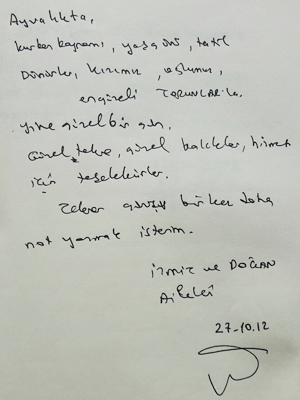 Ayvalıkta,
kurban bayramı, yaşgünü, tatil
Dünürler, kızımız, oğlumuz,
TORUNLAR'la.
yine güzel bir gün,
Güzel tekne, güzel balıklar, hizmet
için teşekkürler.
bir kez daha
not yazmak isterim.
İzmiz ve DOĞAN
Aileleri
27-10.12